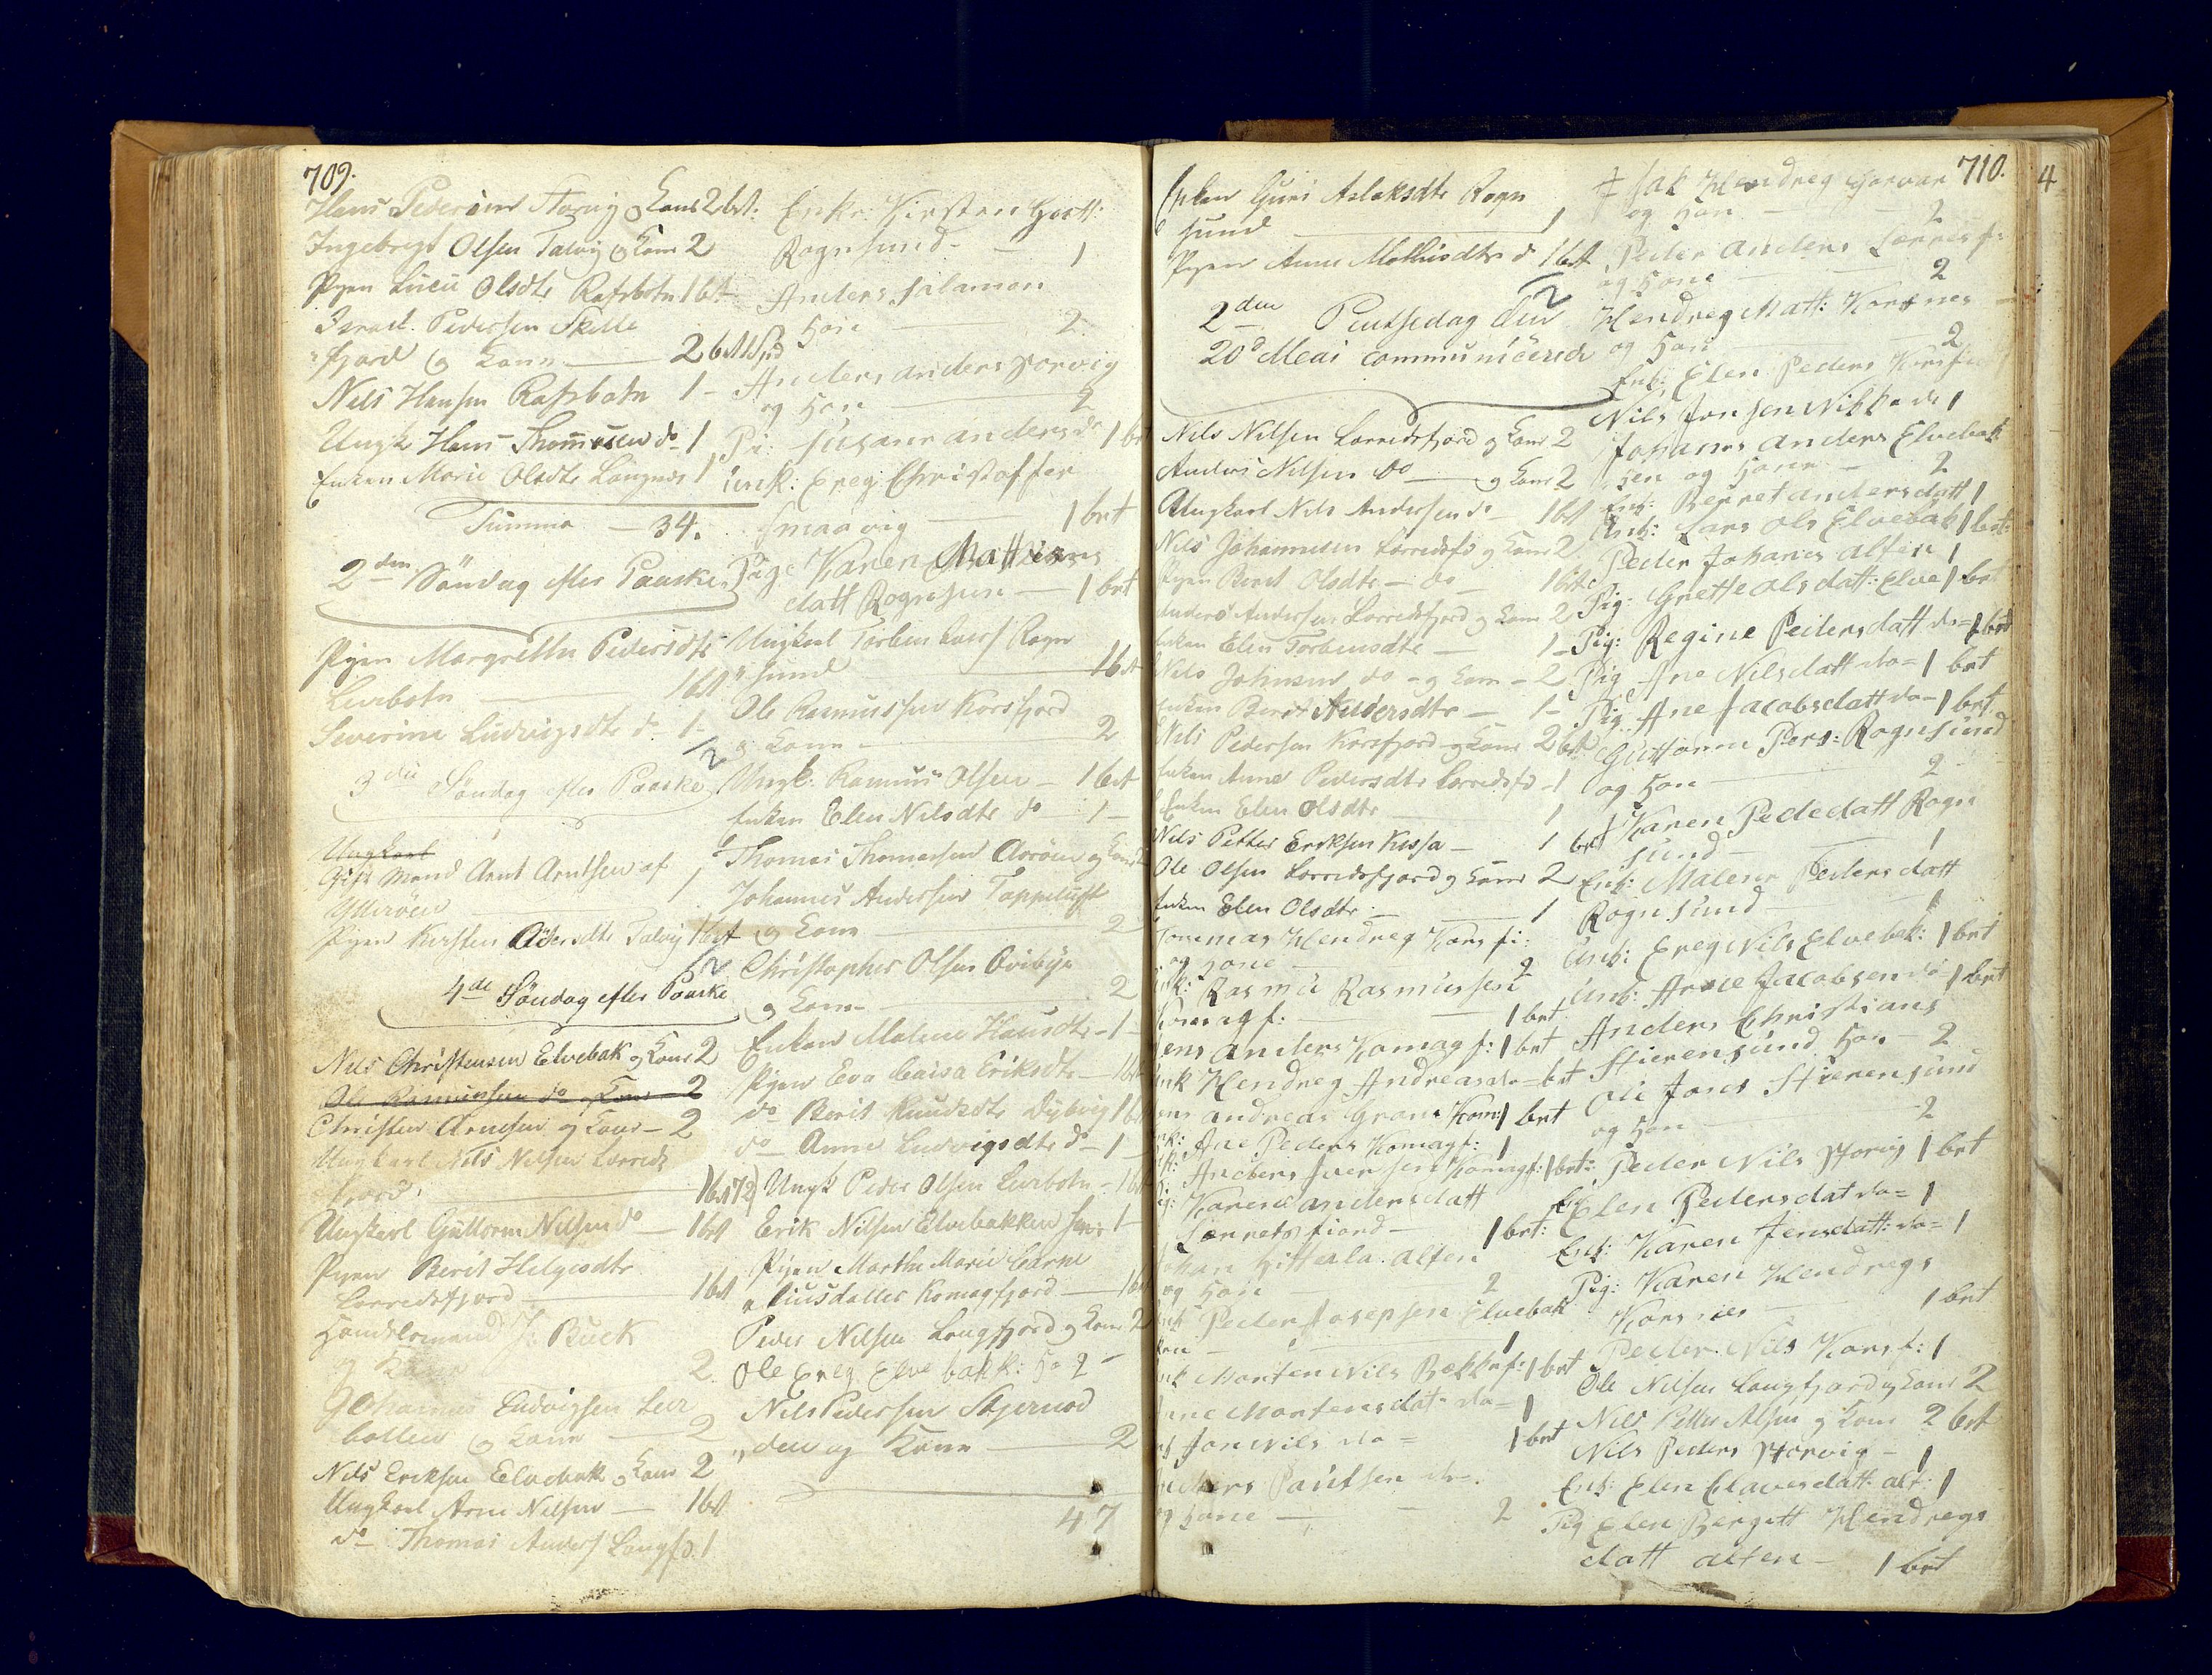 709.
Hans Pedersen Storvig og Kone 2 bet:
Ingebregt Olsen Talvig og Kone 2
Pigen Lucie Olsdtr Rafsbotn 1 bet
Israel Pedersen Skille
fjord og Kone — 2 bet
Nils Hansen Rafsbotn 1 –
Ungk Hans Thomesen do 1
Enken Marie Olsdtr Langnes 1
Summa — 34.
2den Söndag efter Paaske
Pigen Margrethe Pedersdtr
Leerbotn — 1 bet
Severine Ludvigsdtr do 1 –
3die Söndag efter Paaske
Ungkarl
Gift Mand Arnt Arntsen af
Ytteröen — 1
Pigen Kirsten Adersdtr Talvig 1 bet
4de Söndag efter Paaske
Nils Christensen Elvebak og Kone 2
Ole Rasmussen do og Kone 2
Christen Arnesen og Kone – 2
Ungkarl Nils Nilsen Lerreds
fjord — 1 bet
Ungkarl Guttorm Nilsen do — 1 bet
Pigen Berit Helgesdtr
Lerredsfjord — 1 bet
Handelsmand Buck
og Kone 2
Johannes Ludvigsen Leer
botten og Kone — 2
Nils Eriksen Elvebak og Kone 2
Ungkarl Arne Nilsen — 1 bet
do Thomas Anders Langfd. 1
Enke: Kirsten Gutt:
Rognsund — 1
Anders Salamon
Kone — 2
Anders Anders Storvig
og Kone 2
Pi: Susane Anders do 1 bet
Enk: Ereg Christoffer
Smaavig — 1 bet
Pige Karen Mathias
datt Rognsun — 1 bet
Ungkarl Torben Rogn
sund — 1 bet
Ole Rasmussen Korsfjord
og Kone — 2
Ungk. Rasmus Olsen — 1 bet
Enken Elen Nilsdtr do 1 –
Thomas Thomassen Aaröen og Kone 2
Johannes Andersen Tappeluft
og Kone — 2
Christopher Olsen Qvibye
og Kone — 2
Enken Malene Hansdtr – 1 –
Pigen Eva Caisa Eriksdtr — 1 bet
do Berit Knudsdtr Dybvig 1 bet
do Anne Ludvigsdtr do – 1 –
Ungk Peder Olsen Leerbotn – 1 bet
Erik Nilsen Elvebakken 1 –
Pigen Marthe Marie
datter Komagfjord — 1 bet
Peder Nilsen Langfjord og Kone 2
Ole Ereg Elvebakk: Ko 2
Nils Pedersen Stjernod
den og Kone — 2
47
710.
4
Enken Guri Aslaksdtr Rogn
sund — 1
Pigen Anne Mathisdtr do 1 bet
2den Pintsedag den
20d Meai communicerede
Nils Nilsen Lerredsfjord og Kone 2
Anders Nilsen do — og Kone 2
Ungkarl Nils Andersen do – 1 bet
Nils Johannesen Lerredsfd og Kone 2
Pigen Berit Olsdtr — do 1 bet
Anders Andersen Lerredsfjord og Kone 2
Enken Elen Torbensdtr — 1 –
Nils Johnsen do – og Kone – 2
Enken Berit Andersdtr — 1 –
Nils Pedersen Korsfjord og Kone 2 bet
Enken Anne Pedersdtr Lerredsfd – 1
Enken Elen Olsdtr 1
Nils Petter Eriksen Kussa — 1 bet
Ole Olsen Lerredsfjord og Kone 2
Enken Elen Olsdtr — 1
Tommas Hendreg Korsfi:
og Kone — 2
Rasmu Rasmussen
Komagf: — 1 bet
Jens Anders Komagf: 1 bet
Hendreg Andreas do = bet
Andreas Grone Kom: 1 bet
Ane Peders Komagf: 1
Anders Iversen Komagf: 1 bet:
Karen Andersdatt
Lerretsfiord — 1 bet:
Johan Hittala. Alten
og Kone 2
Peder Josepsen Elvebak
ken — 1
Morten Nils Bekkef: 1 bet
Ane Mortensdat do = 1
Jon Nils do = 1 bet
Anders Paulsen do =
og Kone — 2
Isak Hendreg Garvar
og Kone — 2
Peder Anders Lerresf:
og Kone 2
Hendreg Matt: Korsnes
og Kone 2
Enk: Elen Peders Korsf
Nils Jonsen Nibba do 1
Johanes Anders Elvebak
ken og Kone — 2
Enk: Berret Andersdatt 1
Unk: Lars Ols Elvebak 1 bet:
Peder Johanes Alten 1
Pig: Grette Olsdatt: Elve 1 bet
Pig: Regine Pedersdatt do = 1 bet
Pig Ane Nilsdatt do = 1 bet
Pig Ane Jacobsdatt do – 1 bet
Guttorm Pers: Rognsund
og Kone — 2
Karen Pededatt Rogn
sund — 1
Enk: Malene Pedersdatt
Rognsund — 1
Unk: Ereg Nils Elvebak: 1 bet
Unk: Arne Jacobsen do 1 bet
Anders Christians
Stierensund Kon – 2
Ole Jones Stierensund
og Kon — 2
Peder Nils Storvig 1 bet
Elen Pedersdat do = 1
Enk: Karen Jensdatt: do = 1
Pig: Karen Hendregs
Korsnes — 1 bet
Peder Nils Korsf: 1
Ole Nilsen Langfjord og Kone 2
Nils Petter Alsen og Kone 2 bet
Nils Peders Storvig – 1
Enk: Elen Clavesdatt: Alt: 1
Pig Elen Bergitt Hendregs
datt Alten — 1 bet